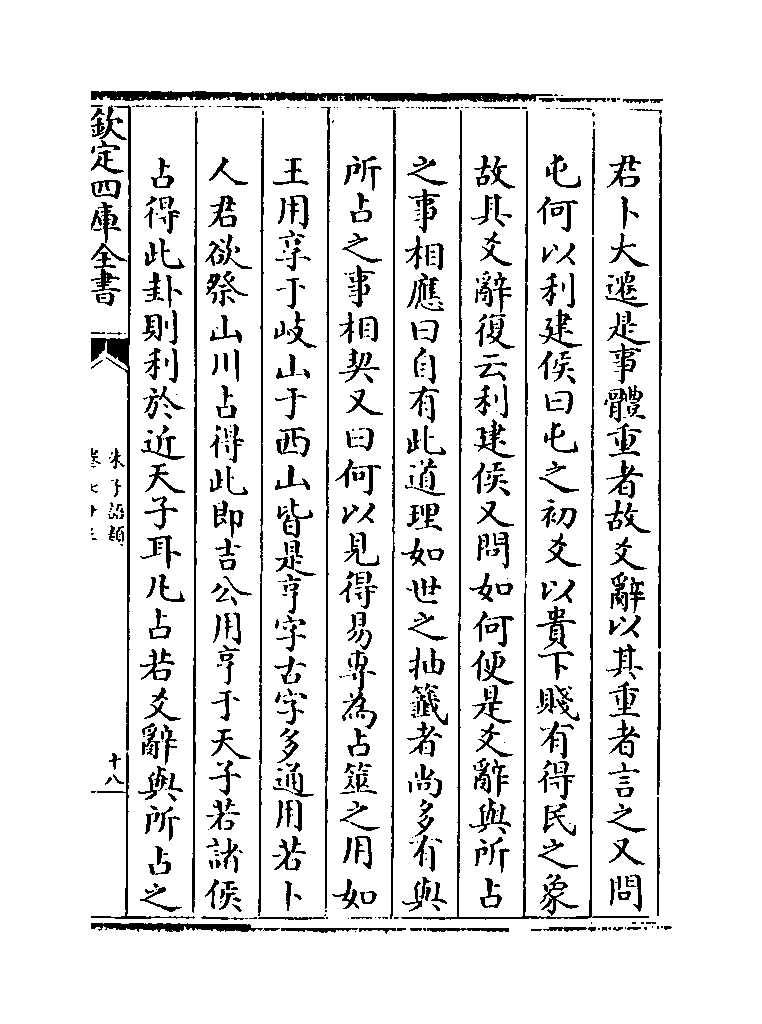 君卜大遷是事體重者故爻辭以其重者言之又問
屯何以利建侯曰屯之初爻以貴下賤有得民之象
故其爻辭復云利建侯又問如何便是爻辭與所占
之事相應曰自有此道理如世之抽籤者尚多有與
所占之事相契又曰何以見得易專為占筮之用如
王用享于岐山于西山皆是亨字古字多通用若卜
人君欲祭山川占得此即吉公用亨于天子若諸侯
占得此卦則利於近天子耳凡占若爻辭與所占之
欽定四庫全書
朱子語類
十八